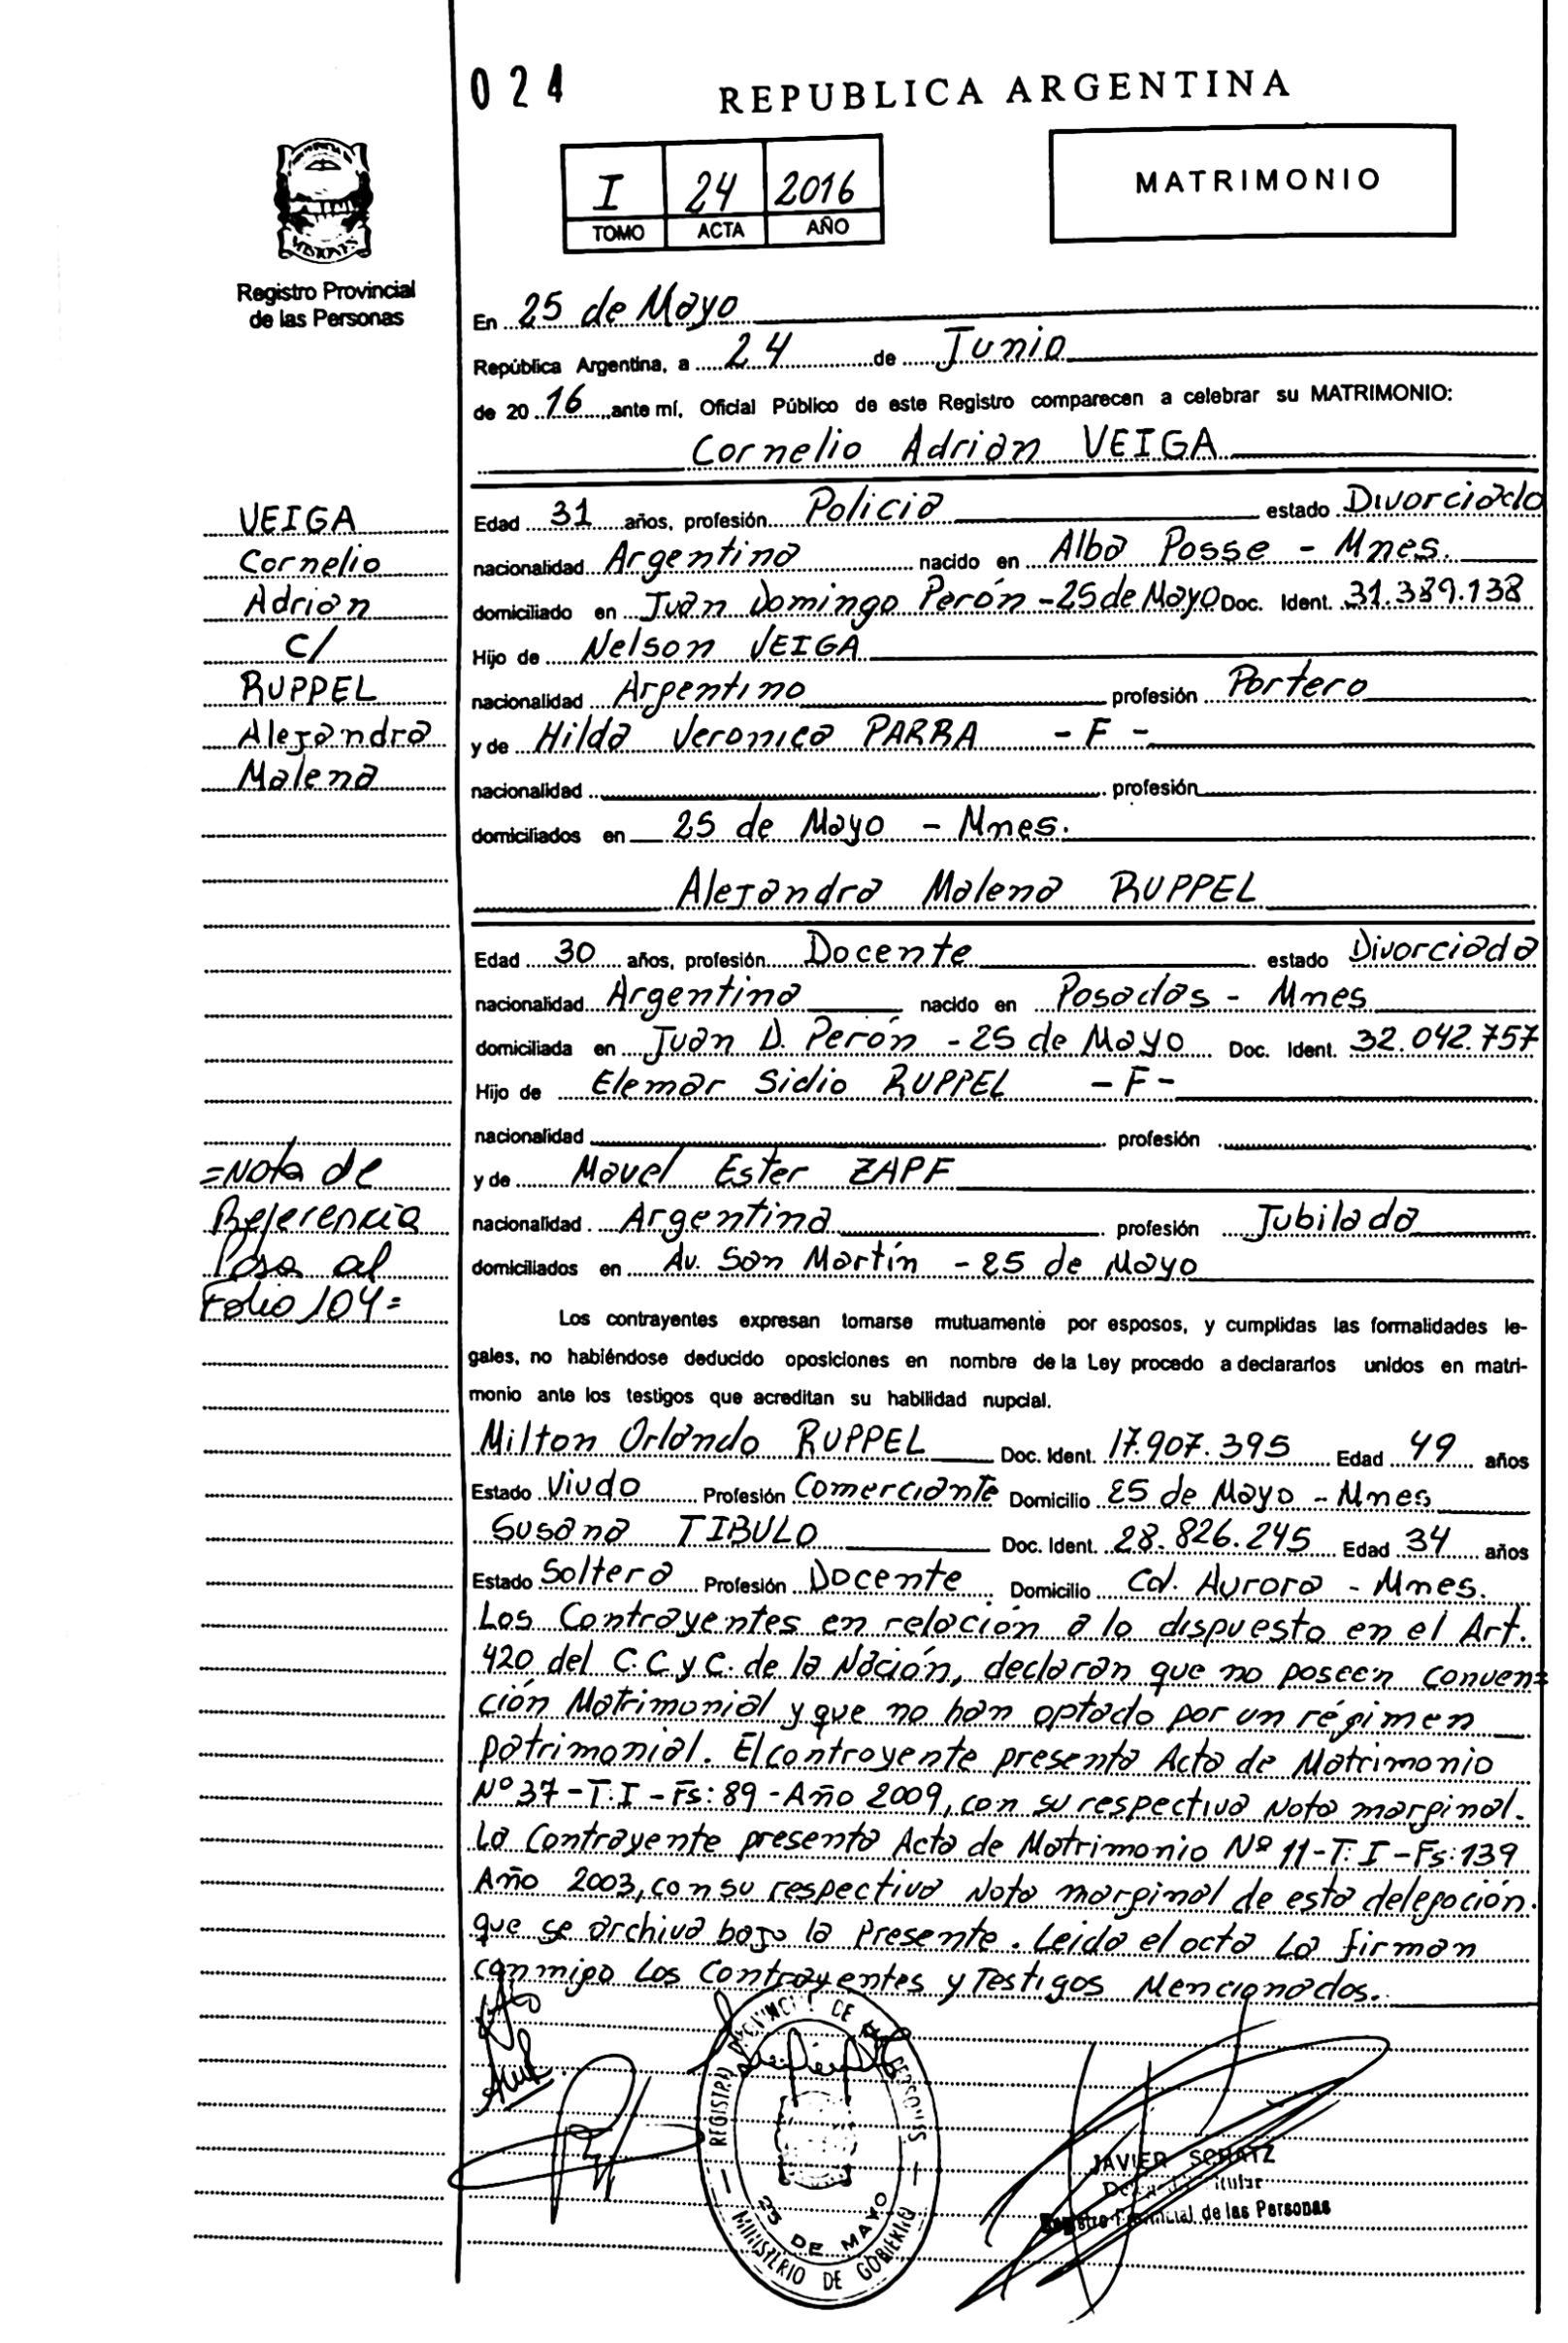 024
REPUBLICA ARGENTINA
I 24 2016
TOMO ACTA AÑO
MATRIMONIO
MISIONES
Registro Provincial
de las Personas
En 25 de Mayo
República Argentina, a 24 de Junio
de 20 16 ante mí, Oficial Público de este Registro comparecen a celebrar su MATRIMONIO:
Cornelio Adrian VEIGA
VEIGA
Cornelio
Adrian
C/
RUPPEL
Alejandra
Malena
Edad 31 años, profesión Policia estado Divorciado
nacionalidad Argentina nacido en Alba Posse - Mnes.
domiciliado en Juan Domingo Perón - 25 de Mayo Doc. Ident. 31.389.138
Hijo de Nelson VEIGA
nacionalidad Argentino profesión Portero
y de Hilda Veronica PARRA - F -
nacionalidad profesión
domiciliados en 25 de Mayo - Mnes.
Alejandra Malena RUPPEL
Edad 30 años, profesión Docente estado Divorciada
nacionalidad Argentina nacido en Posadas - Mnes
domiciliada en Juan D. Perón - 25 de Mayo Doc. Ident. 32.042.757
Hijo de Elemar Sidio RUPPEL - F -
nacionalidad profesión
y de Mavel Ester ZAPF
nacionalidad Argentina profesión Jubilada
domiciliados en Av. San Martín - 25 de Mayo
=Nota de
Referencia
Pasa al
Folio 104=
Los contrayentes expresan tomarse mutuamente por esposos, y cumplidas las formalidades le-
gales, no habiéndose deducido oposiciones en nombre de la Ley procedo a declararlos unidos en matri-
monio ante los testigos que acreditan su habilidad nupcial.
Milton Orlando RUPPEL Doc. Ident. 17.907.395 Edad 49 años
Estado Viudo Profesión Comerciante Domicilio 25 de Mayo - Mnes
Susana TIBULO Doc. Ident. 28.826.245 Edad 34 años
Estado Soltera Profesión Docente Domicilio Col. Aurora - Mnes.
Los Contrayentes en relación a lo dispuesto en el Art.
420 del C.C y C. de la Nación, declaran que no poseen conven=
ción Matrimonial y que no han optado por un régimen
patrimonial. El controyente presenta Acta de Matrimonio
Nº 37 - T: I - Fs: 89 - Año 2009, con su respectiva Nota marginal.
La Contrayente presenta Acta de Matrimonio Nº 11 - T: I - Fs: 139
Año 2003, con su respectiva Nota marginal de esta delegación.
que se archiva bajo la Presente. Leida el acta La firman
conmigo Los Contrayentes y Testigos Mencionados.
REGISTRO PROVINCIAL DE LAS PERSONAS
25 DE MAYO
MINISTERIO DE GOBIERNO
JAVIER SCHATZ
Titular
Registro Provincial de las Personas